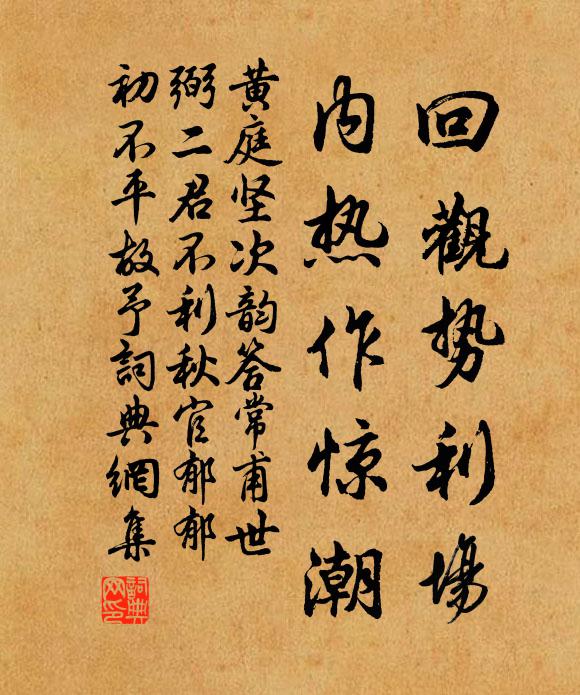 回觀势利場
内热作惊潮
黄庭坚次韵答常甫世
弼二君不利秋官郁郁
初不平故予詞典網集
詞典网印